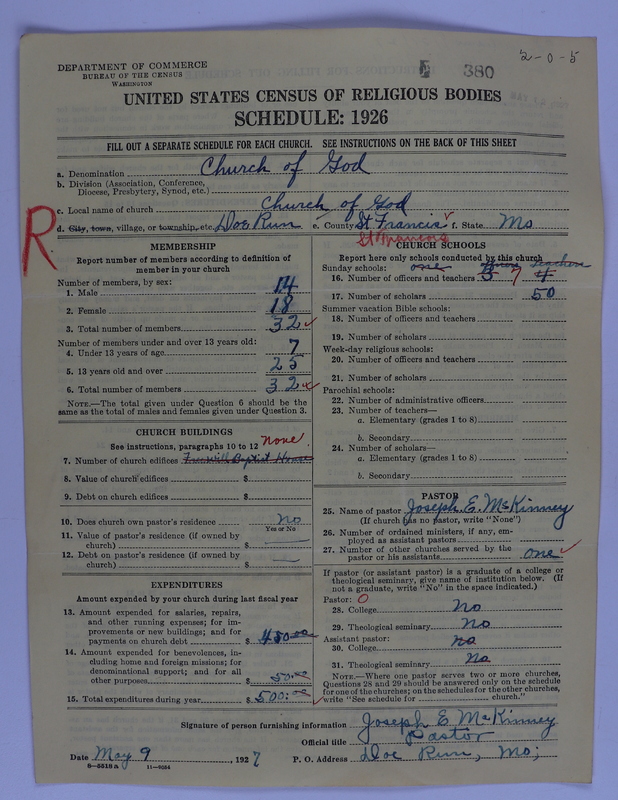 2-0-5
380
DEPARTMENT OF COMMERCE
BUREAU OF THE CENSUS
WASHINGTON
UNITED STATES CENSUS OF RELIGIOUS BODIES
SCHEDULE: 1926
FILL OUT A SEPARATE SCHEDULE FOR EACH CHURCH. SEE INSTRUCTIONS ON THE BACK OF THIS SHEET
a. Denomination Church of God
b. Division (Association, Conference,
Diocese, Presbytery, Synod, etc.)
c. Local name of church Church of God
d. City, town, village, or township, etc. Doe Run e. County St Francis f. State Mo
St Francois
R
MEMBERSHIP
Report number of members according to definition of
member in your church
Number of members, by sex:
1. Male 14
2. Female 18
3. Total number of members 32
Number of members under and over 13 years old:
4. Under 13 years of age 7
5. 13 years old and over 25
6. Total number of members 32
NOTE.—The total given under Question 6 should be
same as the total of males and females given under Question 3.
CHURCH BUILDINGS
See instructions, paragraphs 10 to 12 none
7. Number of church edifices Freewill Baptist House
8. Value of church edifices $
9. Debt on church edifices $
10. Does church own pastor's residence no
Yes or No
11. Value of pastor's residence (if owned by
church) $
12. Debt on pastor's residence (if owned by
church) $
EXPENDITURES
Amount expended by your church during last fiscal year
13. Amount expended for salaries, repairs,
and other running expenses; for im-
provements or new buildings; and for
payments on church debt $ 450.00
14. Amount expended for benevolences, in-
cluding home and foreign missions; for
denominational support; and for all
other purposes $ 50.00
15. Total expenditures during year $ 500.00
CHURCH SCHOOLS
Report here only schools conducted by this church
Sunday schools: one Teachers
16. Number of officers and teachers 3 7 4
17. Number of scholars 50
Summer vacation Bible schools:
18. Number of officers and teachers
19. Number of scholars
Week-day religious schools:
20. Number of officers and teachers
21. Number of scholars
Parochial schools:
22. Number of administrative officers
23. Number of teachers—
a. Elementary (grades 1 to 8)
b. Secondary
24. Number of scholars—
a. Elementary (grades 1 to 8)
b. Secondary
PASTOR
25. Name of pastor Joseph E. McKinney
(If church has no pastor, write "None")
26. Number of ordained ministers, if any, em-
ployed as assistant pastors
27. Number of other churches served by the
pastor or his assistants one
If pastor (or assistant pastor) is a graduate of a college or
theological seminary, give name of institution below. (If
not a graduate, write "No" in the space indicated.)
Pastor: O
28. College No
29. Theological seminary No
Assistant pastor:
30. College no
31. Theological seminary No
NOTE.—Where one pastor serves two or more churches,
Questions 28 and 29 should be answered only on the schedule
for one of the churches; on the schedules for the other churches,
write "See schedule for church."
Signature of person furnishing information Joseph E McKinney
Official title Pastor
Date May 9, 1927 P. O. Address Doe Run, Mo;
8-5518 a